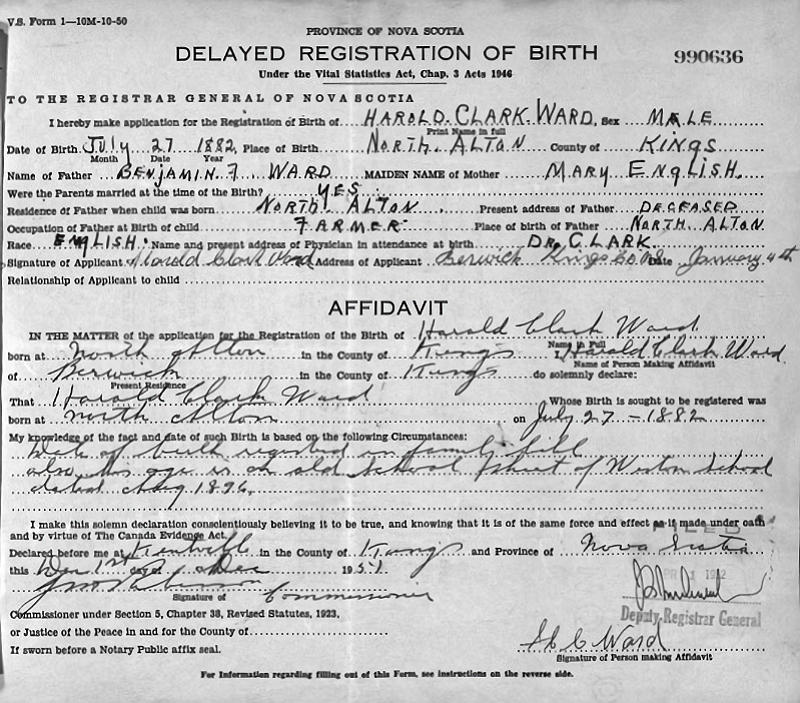 V.S. Form 1—10M-10-50
PROVINCE OF NOVA SCOTIA
DELAYED REGISTRATION OF BIRTH
990636
Under the Vital Statistics Act, Chap. 3 Acts 1946
TO THE REGISTRAR GENERAL OF NOVA SCOTIA
I hereby make application for the Registration of Birth of HAROLD CLARK WARD, Sex MALE
Print Name in full
Date of Birth JULY 27 1882, Place of Birth NORTH ALTON County of KINGS
Month Date Year
Name of Father BENJAMIN F WARD MAIDEN NAME of Mother MARY ENGLISH.
Were the Parents married at the time of the Birth? YES
Residence of Father when child was born NORTH ALTON Present address of Father DECEASED
Occupation of Father at Birth of child FARMER Place of birth of Father NORTH ALTON
Race ENGLISH. Name and present address of Physician in attendance at birth DR. CLARK
Signature of Applicant Harold Clark Ward Address of Applicant Berwick Kings Co. Date January 4th
Relationship of Applicant to child
AFFIDAVIT
IN THE MATTER of the application for the Registration of the Birth of Harold Clark Ward
Name in Full
born at North Alton in the County of Kings I, Harold Clark Ward
Name of Person Making Affidavit
of Berwick in the County of Kings do solemnly declare:
Present Residence
That Harold Clark Ward Whose Birth is sought to be registered was
born at North Alton on July 27 - 1882
My knowledge of the fact and date of such Birth is based on the following Circumstances:
Date of birth in family
also his age is on old School of Weston School
dated Aug 1896.
I make this solemn declaration conscientiously believing it to be true, and knowing that it is of the same force and effect as if made under oath
and by virtue of The Canada Evidence Act.
FILED
Declared before me at Kentville in the County of Kings and Province of Nova Scotia
this 1st day of Dec 1951
Signature of Commissioner
Deputy Registrar General
Commissioner under Section 5, Chapter 38, Revised Statutes, 1923,
or Justice of the Peace in and for the County of
H C Ward
If sworn before a Notary Public affix seal.
Signature of Person making Affidavit
For Information regarding filling out of this Form, see instructions on the reverse side.